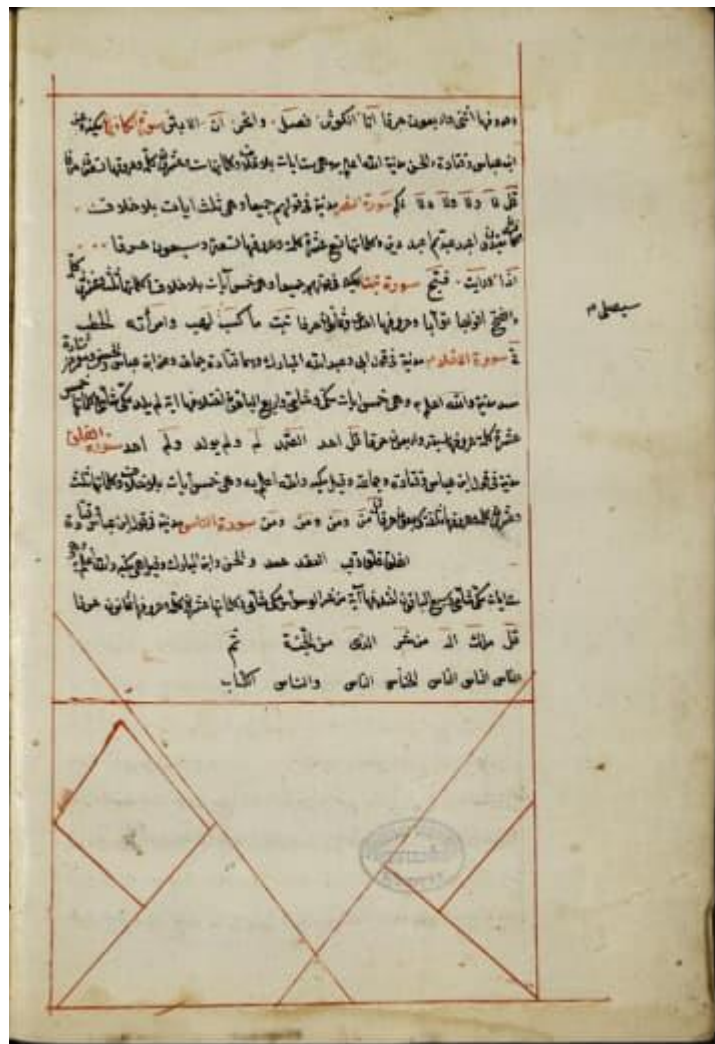 وحروفها اثنى واربعون حرفا انا الكوثر فصل وانحر ان الابتر سورة الكافرين مكية عن
ابن عباس وقتادة والحسن مدنية الله اعلم به وهي ست ايات بلا خلاف وكلماتها ست وعشرون كلمة وحروفها تسعون حرفا
قل لا ولا ولا ولا لكم سورة النصر مدنية في قولهم جميعا وهي ثلث ايات بلا خلاف
اعبد عبدتم اعبد دين وكلماتها تسع عشرة كلمة وحروفها تسعة وسبعون حرفا
اذا ورايت فسبح سورة تبت مكية في قولهم جميعا وهي خمس آيات بلا خلاف كلماتها ثلث وعشرون كلمة
والفتح افواجا توابا وحروفها احدى وثمانون حرفا تبت ما كسب لهب وامرأته الحطب
في سورة الاخلاص مدنية في قول ابى وعبد الله المبارك وقتادة وجماعة وعن ابن عباس والحسن
مدنية والله اعلم به وهي خمس ايات مكى وشامى واربع الباقون اختلافها اية لم يلد مكى شامى وكلماتها خمس
عشرة كلمة وحروفها سبعة واربعون حرفا قل احد الصمد لم ولم يولد ولم احد سورة الفلق
مدنية في قول ابن عباس وقتادة وجماعة وقيل مكية والله اعلم به وهي خمس آيات بلا خلاف وكلماتها ثلث
وعشرون كلمة وحروفها ثلثة وسبعون حرفا قل من ومن ومن ومن سورة الناس مدنية في قول ابن عباس وقتادة
الفلق خلق وقب العقد حسد والحسن وابن المبارك وقيل هي مكية والله اعلم به وهي
ست ايات مكى شامى سبع الباقون اختلافها آية من شر الوسواس مكى شامى وكلماتها عشرون كلمة وحروفها ثمانون حرفا
قل ملك اله من شر الذى من الجنة تم
الناس الناس الناس الخناس الناس والناس الكتاب
سيصلى